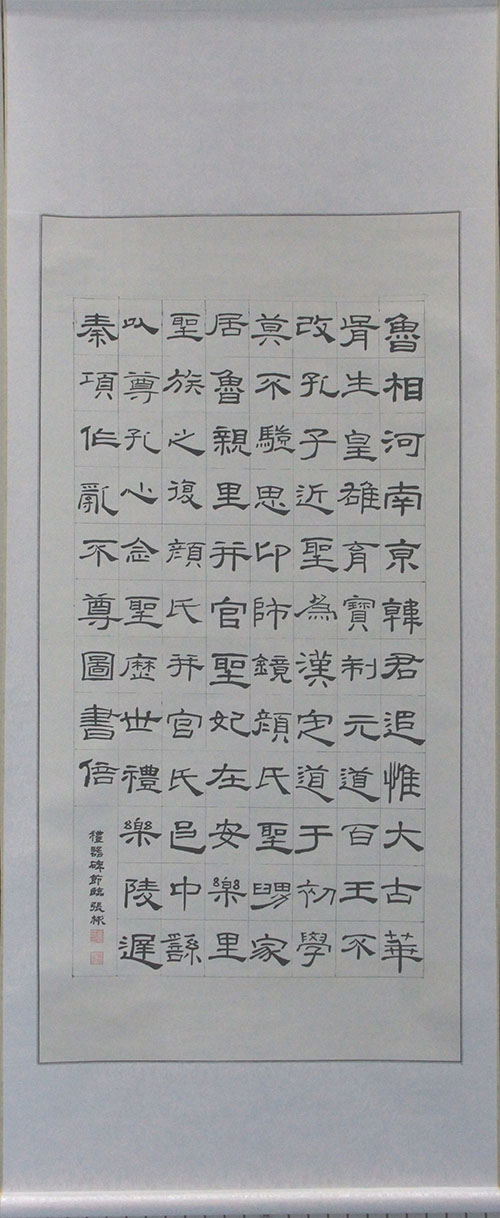 魯相河南京韓君追惟大古華
胥生皇雄育寶制元道百王不
改孔子近聖為漢定道于初學
莫不驗思卬師鏡顏氏聖舅家
居魯親里并官聖妃在安樂里
聖族之復顏氏并官氏邑中繇
以尊孔心念聖歷世禮樂陵遲
秦項作亂不尊圖書倍
禮器碑節臨張